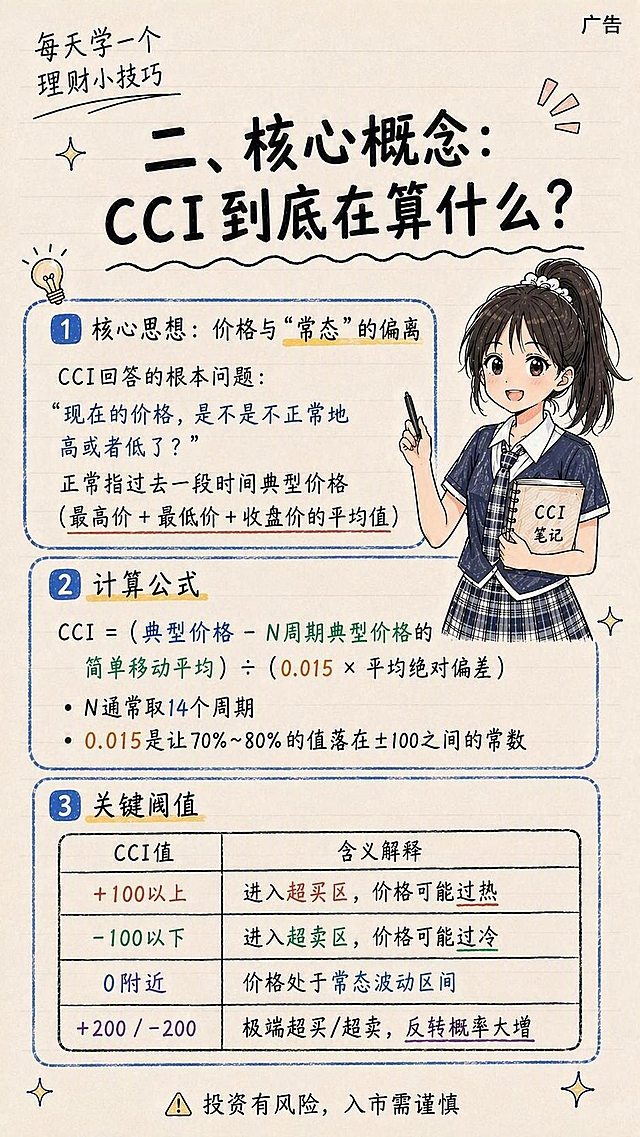 广告
每天学一个
理财小技巧
二、核心概念：
CCI到底在算什么？
1 核心思想：价格与“常态”的偏离
CCI回答的根本问题：
“现在的价格，是不是不正常地
高或者低了？”
正常指过去一段时间典型价格
（最高价+最低价+收盘价的平均值）
CCI
笔记
2 计算公式
CCI =（典型价格 - N周期典型价格的
简单移动平均）÷（0.015 × 平均绝对偏差）
• N通常取14个周期
• 0.015是让70%~80%的值落在±100之间的常数
3 关键阈值
CCI值 含义解释
+100以上 进入超买区，价格可能过热
-100以下 进入超卖区，价格可能过冷
0附近 价格处于常态波动区间
+200 / -200 极端超买/超卖，反转概率大增
投资有风险，入市需谨慎